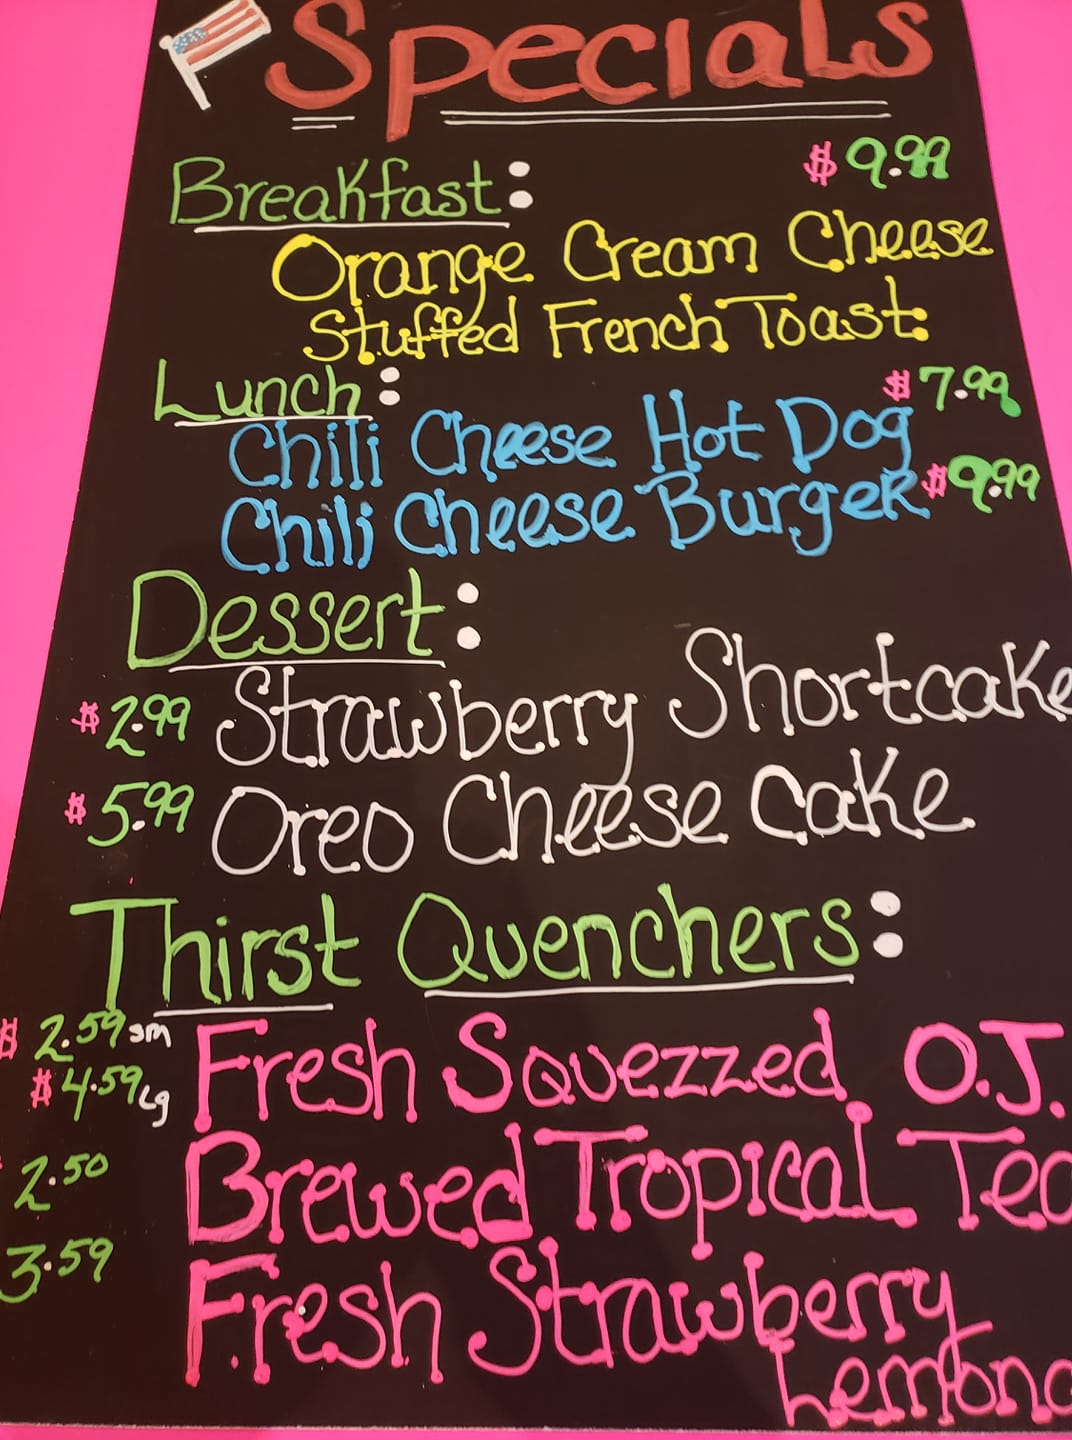 Specials
Breakfast: $ 9.99
Orange Cream Cheese
Stuffed French Toast
Lunch: $ 7.99
Chili Cheese Hot Dog
Chili Cheese Burger $ 9.99
Dessert:
$ 2.99 Strawberry Shortcake
$ 5.99 Oreo Cheese Cake
Thirst Quenchers:
$ 2.59 sm Fresh Squezzed O.J.
$ 4.59 Lg
2.50 Brewed Tropical Tea
3.59 Fresh Strawberry
Lemona